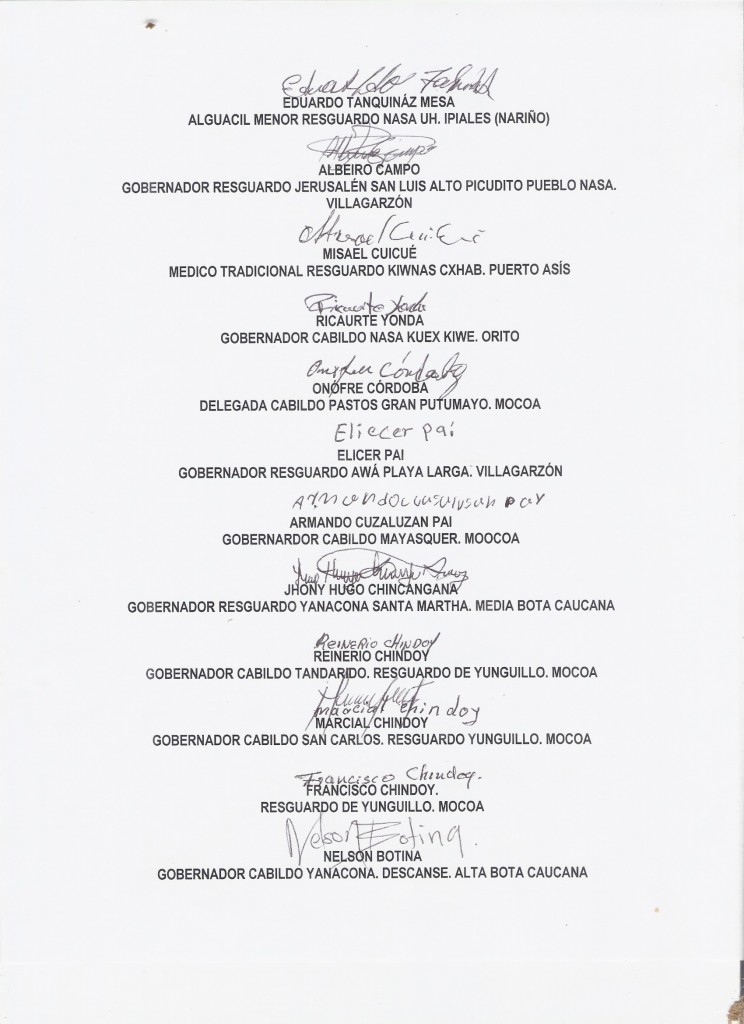 Eduardo
EDUARDO TANQUINÁZ MESA
ALGUACIL MENOR RESGUARDO NASA UH. IPIALES (NARIÑO)
Albeiro Campo
ALBEIRO CAMPO
GOBERNADOR RESGUARDO JERUSALÉN SAN LUIS ALTO PICUDITO PUEBLO NASA.
VILLAGARZÓN
MISAEL CUICUÉ
MEDICO TRADICIONAL RESGUARDO KIWNAS CXHAB. PUERTO ASÍS
Ricaurte Yonda
RICAURTE YONDA
GOBERNADOR CABILDO NASA KUEX KIWE. ORITO
Córdoba
ONÓFRE CÓRDOBA
DELEGADA CABILDO PASTOS GRAN PUTUMAYO. MOCOA
Eliecer pai
ELICER PAI
GOBERNADOR RESGUARDO AWÁ PLAYA LARGA. VILLAGARZÓN
ARMANDO CUZALUZAN PAI
GOBERNARDOR CABILDO MAYASQUER. MOOCOA
JHONY HUGO CHINCANGANA
GOBERNADOR RESGUARDO YANACONA SANTA MARTHA. MEDIA BOTA CAUCANA
REINERIO CHINDOY
REINERIO CHINDOY
GOBERNADOR CABILDO TANDARIDO. RESGUARDO DE YUNGUILLO. MOCOA
marcial chindoy
MARCIAL CHINDOY
GOBERNADOR CABILDO SAN CARLOS. RESGUARDO YUNGUILLO. MOCOA
Francisco Chindoy.
FRANCISCO CHINDOY.
RESGUARDO DE YUNGUILLO. MOCOA
Nelson Botina.
NELSON BOTINA
GOBERNADOR CABILDO YANACONA. DESCANSE. ALTA BOTA CAUCANA